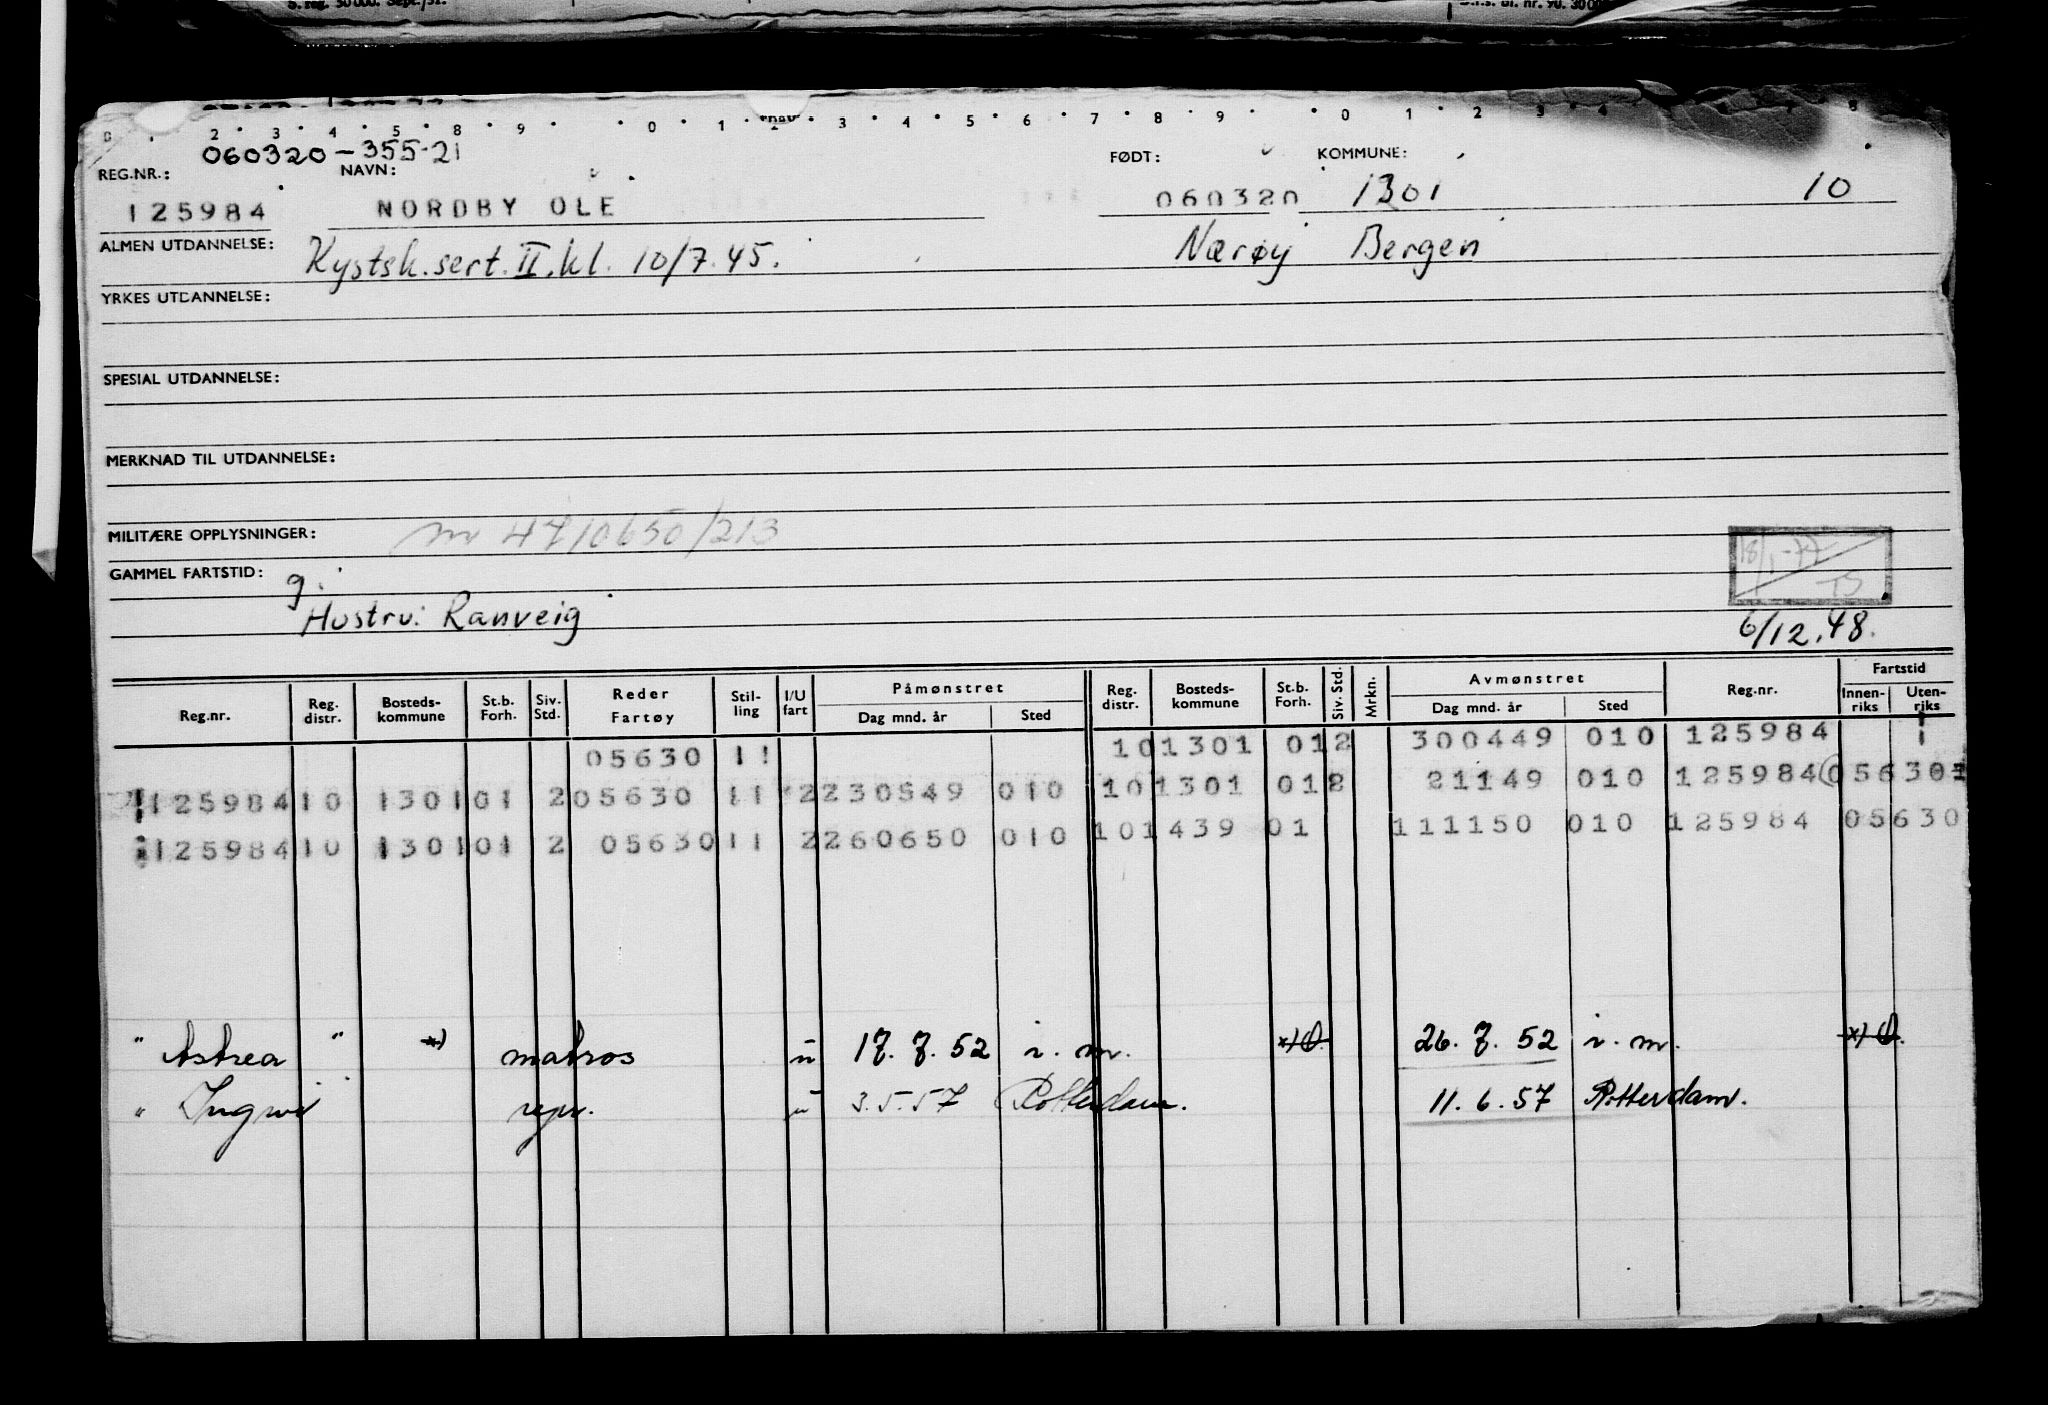 S. reg. 50 000. Sept./51.
2 3 4 5 8 9 0 1 3 4 5 6 7 8 9 0 1 2 3 4
060320-355-21
REG.NR.: NAVN: FØDT: KOMMUNE:
125984 NORDBY OLE 060320 1301 10
ALMEN UTDANNELSE: Kystsk.sert. II.kl. 10/7.45. Nærøy Bergen
YRKES UTDANNELSE:
SPESIAL UTDANNELSE:
MERKNAD TIL UTDANNELSE:
MILITÆRE OPPLYSNINGER: nr 4710650/213
GAMMEL FARTSTID: g. 18/1-77 TS
Hustru: Ranveig 6/12.48.
Reg.nr. Reg. distr. Bosteds-kommune St.b. Forh. Siv. Std. Reder Fartøy Stil-ling I/U fart Påmønstret Dag mnd. år Sted Reg. distr. Bosteds-kommune St.b. Forh. Siv. Std. Mrkn. Avmønstret Dag mnd. år Sted Reg.nr. Fartstid Innen-riks Uten-riks
05630 11 10 1301 01 2 300449 010 125984 1
125984 10 1301 01 2 05630 11 2 230549 010 10 1301 01 2 21149 010 125984 05630
125984 10 1301 01 2 05630 11 2 260650 010 10 1439 01 111150 010 125984 05630
" Astrea " *) matros u 17.7.52 i.m. *) 26.7.52 i.m. *)
" " repr. u 3.5.57 Rotterdam. 11.6.57 Rotterdam.